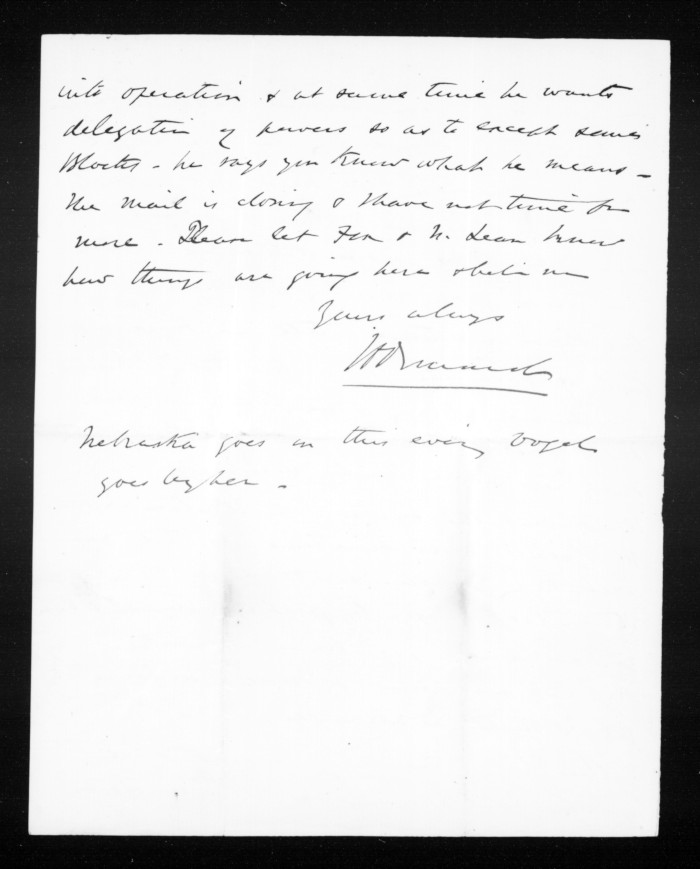 into operation & at same time he wants
delegation of powers so as to except some
Blocks - he says you know what he means -
The mail is closing & I have not time for
more. Please let Fox & McLean know
how things are going here & believe me
Yours always
Nebraska goes on this evening Vogel
goes by her -